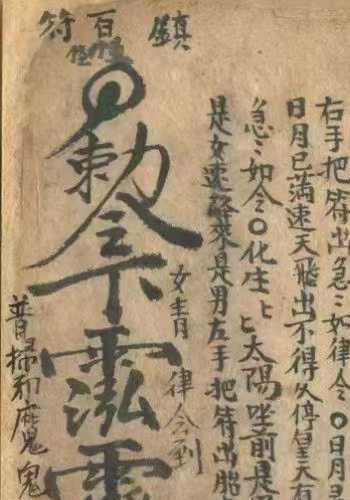 鎮百怪符
右手把符出急〻如律令〇日月
日月已滿速天飛出不得久停皇天有
急〻如令〇化生〻〻太陽坐前是
是女速降來是男左手把符出胎
女青律令到
勅令下
普掃邪鬼